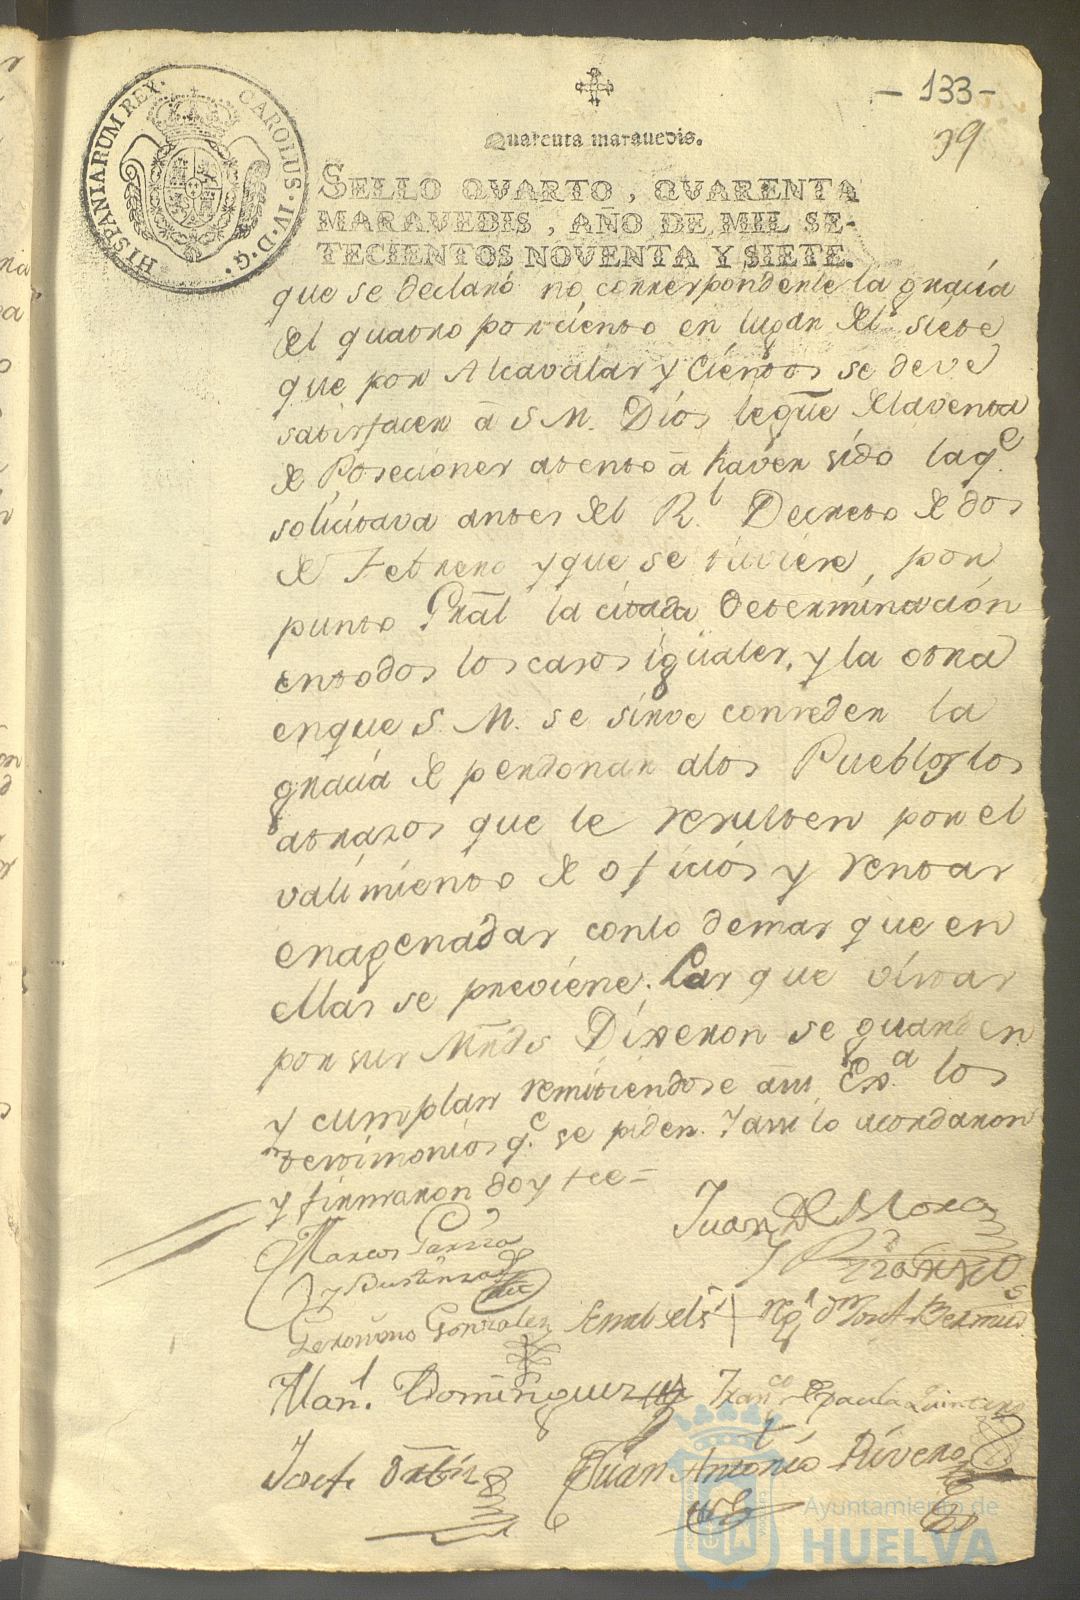 - 133 -
39
HISPANIARUM REX. CAROLUS · IV · D · G ·
Quarenta marauedis.
SELLO QVARTO, QVARENTA
MARAVEDIS, AÑO DE MIL SE-
TECIENTOS NOVENTA Y SIETE.
que se declaró no correspondente la gracia
del quatro por ciento en lugar del siete
que por Alcavalas y Cientos se deve
satisfacer â S M. Dios legue de la venta
de Poseciones atento â haver sido la qe.
solicitava antes del Rl. Decreto de dos
de Febrero y que se tuviere, por
punto Gral la citada determinación
en todos los casos iguales, y la otra
en que S. M. se sirve conceder la
gracia de perdonar a los Pueblos los
atrazos que le resulten por el
valimiento de oficios y rentas
enagenadas con lo demas que en
ellas se previene. Las que vistas
por sus Mrds Dixeron se guarden
y cumplan remitiendose a su Exa. los
testimonios qe. se piden. Y assi lo acordaron
y firmaron doy fee =
Juan de Mora
Marcos García
y Bustinza
Geronimo Gonzalez
Manl. Dominguez Franco de Paula Quintero
Josef Ortiz Juan Antonio Rivero
Ayuntamiento de
HUELVA